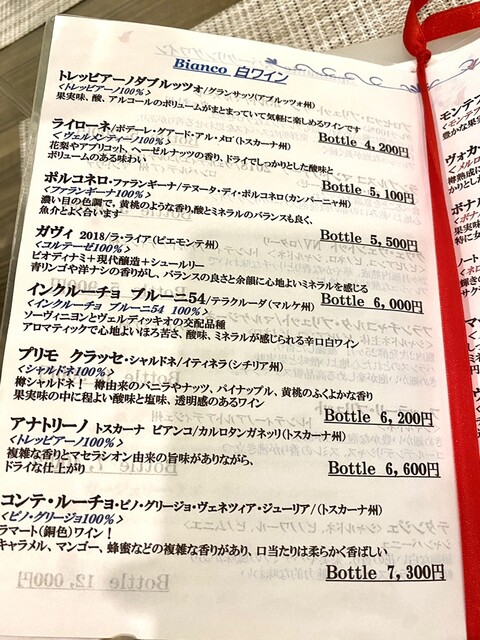 Bianco 白ワイン
トレッビアーノダブルッツオ/グランサッソ(アブルッツォ州)
<トレッビアーノ100%>
果実味、酸、アルコールのボリュームがまとまっていて気軽に楽しめるワインです
Bottle 4,200円
ライローネ/ポデーレ・グアード・アル・メロ(トスカーナ州)
<ヴェルメンティーノ100%>
花梨やアプリコット、ヘーゼルナッツの香り、ドライでしっかりとした酸味と
ボリュームのある味わい
Bottle 5,100円
ボルコネロ・ファランギーナ/テヌータ・ディ・ボルコネロ(カンパーニャ州)
<ファランギーナ100%>
濃い目の色調で、黄桃のような香り,酸とミネラルのバランスも良く、
魚介とよく合います
Bottle 5,500円
ガヴィ 2018/ラ・ライア(ピエモンテ州)
<コルテーゼ100%>
ビオディナミ+現代醸造+シュールリー
青リンゴや洋ナシの香りがし、バランスの良さと余韻に心地よいミネラルを感じる
Bottle 6,000円
インクルーチョ ブルーニ54/テラクルーダ(マルケ州)
<インクルーチョ ブルーニ54 100%>
ソーヴィニヨンとヴェルディッキオの交配品種
アロマティックで心地よいほろ苦さ、酸味、ミネラルが感じられる辛口白ワイン
Bottle 6,200円
プリモ クラッセ・シャルドネ/イティネラ(シチリア州)
<シャルドネ100%>
樽シャルドネ! 樽由来のバニラやナッツ、パイナップル、黄桃のふくよかな香り
果実味の中に程よい酸味と塩味、透明感のあるワイン
Bottle 6,600円
アナトリーノ トスカーナ ビアンコ/カルロタンガネッリ(トスカーナ州)
<トレッビアーノ100%>
複雑な香りとマセラシオン由来の旨味がありながら、
ドライな仕上がり
コンテ・ルーチョ・ピノ・グリージョ・ヴェネツィア・ジューリア/(トスカーナ州)
<ピノ・グリージョ100%>
ラマート(銅色)ワイン!
キャラメル、マンゴー、蜂蜜などの複雑な香りがあり、口当たりは柔らかく香ばしい
Bottle 7,300円